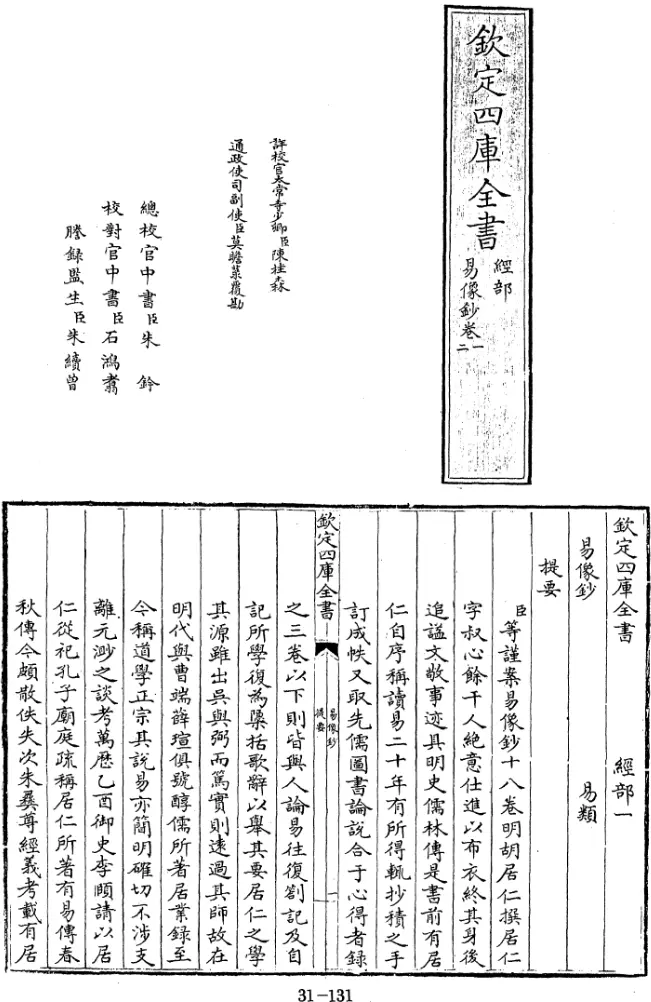 欽定四庫全書
經部
易像鈔卷一
二
詳校官太常寺少卿臣陳桂森
通政使司副使臣莫瞻菉覆勘
總校官中書臣朱鈐
校對官中書臣石鴻翥
謄錄監生臣朱續曾
欽定四庫全書 經部一
易像鈔 易類
提要
臣等謹案易像鈔十八卷明胡居仁撰居仁
字叔心餘干人絶意仕進以布衣終其身後
追謚文敬事迹具明史儒林傳是書前有居
仁自序稱讀易二十年有所得輒抄積之手
訂成帙又取先儒圖書論說合于心得者錄
欽定四庫全書
易像鈔
提要
一
之三卷以下則皆與人論易往復劄記及自
記所學復為檃括歌辭以舉其要居仁之學
其源雖出吳與弼而篤實則遠過其師故在
明代與曹端薛瑄俱號醇儒所著居業錄至
今稱道學正宗其說易亦簡明確切不涉支
離元渺之談考萬歷乙酉御史李頤請以居
仁從祀孔子廟庭疏稱居仁所著有易傳春
秋傳今頗散佚失次朱彝尊經義考載有居
31-131